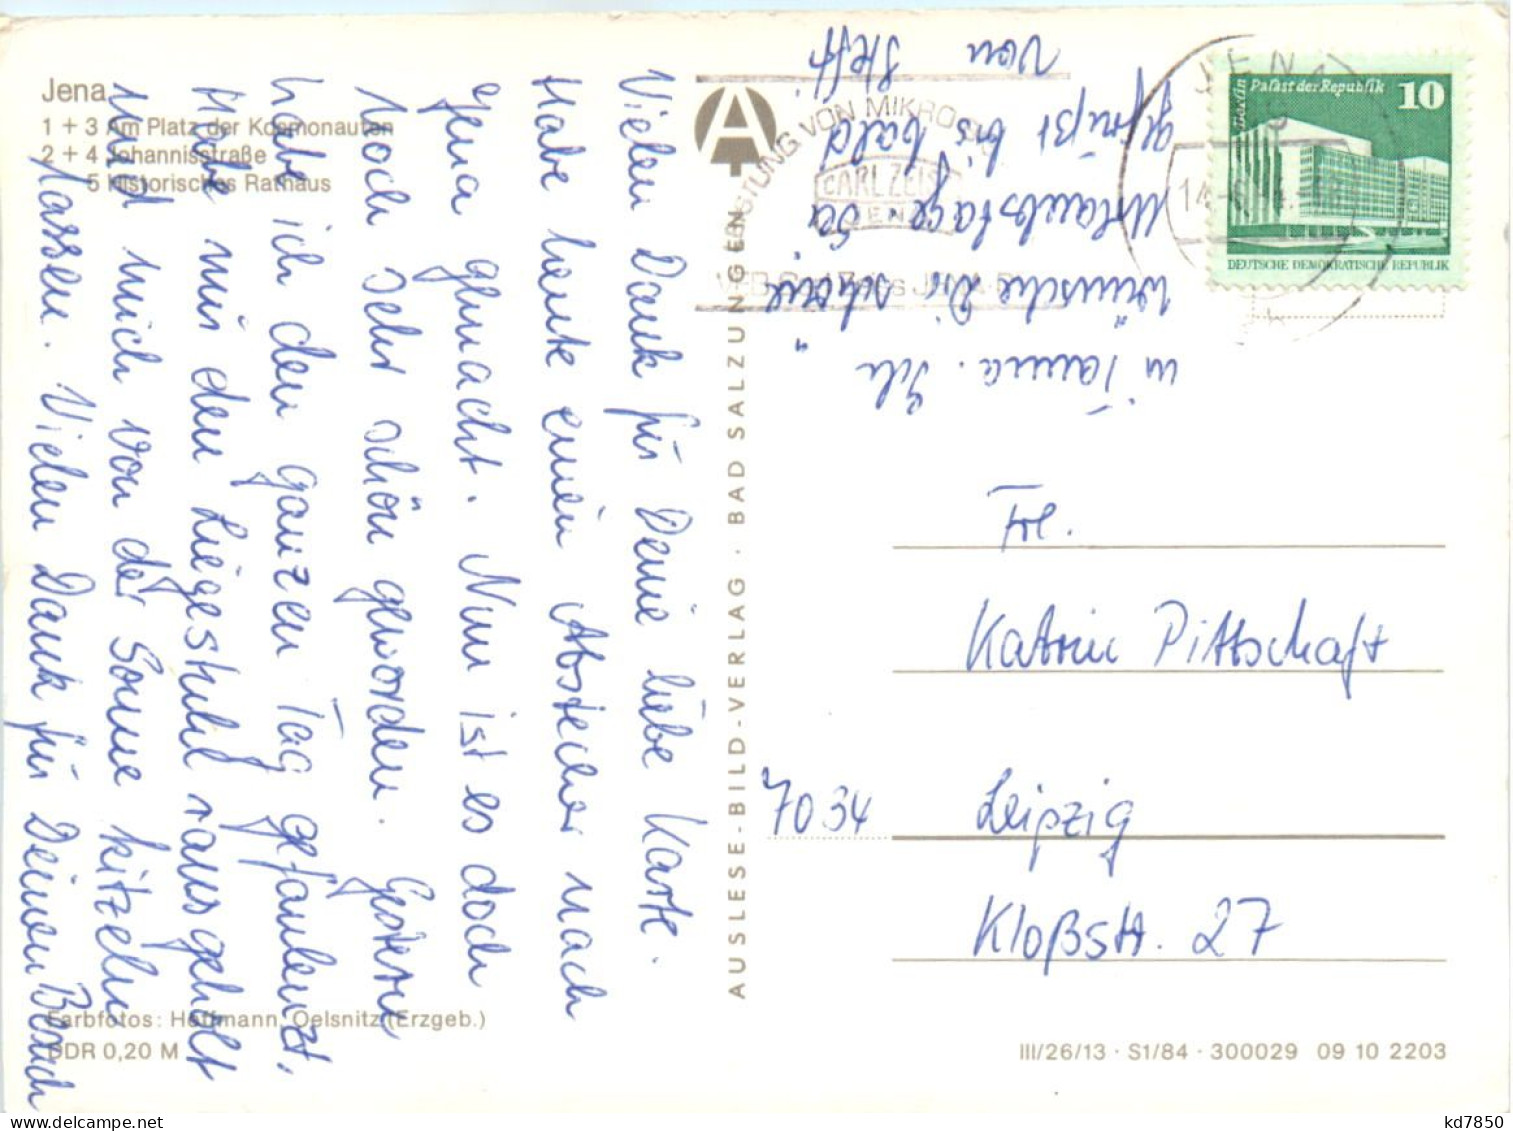 Jena
1 + 3 Am Platz der Kosmonauten
2 + 4 Johannisstraße
5 Historisches Rathaus
Vielen Dank für Deine liebe Karte.
Habe heute einen Abstecher nach
Jena gemacht. Nun ist es doch
noch sehr schön geworden. Gestern
habe ich den ganzen Tag gefaulenzt.
Habe mir den Liegestuhl rausgeholt
und mich von der Sonne kitzeln
lassen. Vielen Dank für Deinen Besuch
in Tanna. Ich
wünsche Dir schöne
Urlaubstage
gegrüßt bis bald
von Steffi
Farbfotos: Hoffmann, Oelsnitz (Erzgeb.)
DDR 0,20 M
A
AUSLESE-BILD-VERLAG · BAD SALZUNGEN
VON MIKRO
CARL ZEISS
JENA
VEB Carl Zeiss JENA
JENA
Berlin Palast der Republik 10
DEUTSCHE DEMOKRATISCHE REPUBLIK
Frl.
Katrin Pittschaft
7034 Leipzig
Kloßstr. 27
III/26/13 · S1/84 · 300029 09 10 2203
kd7850